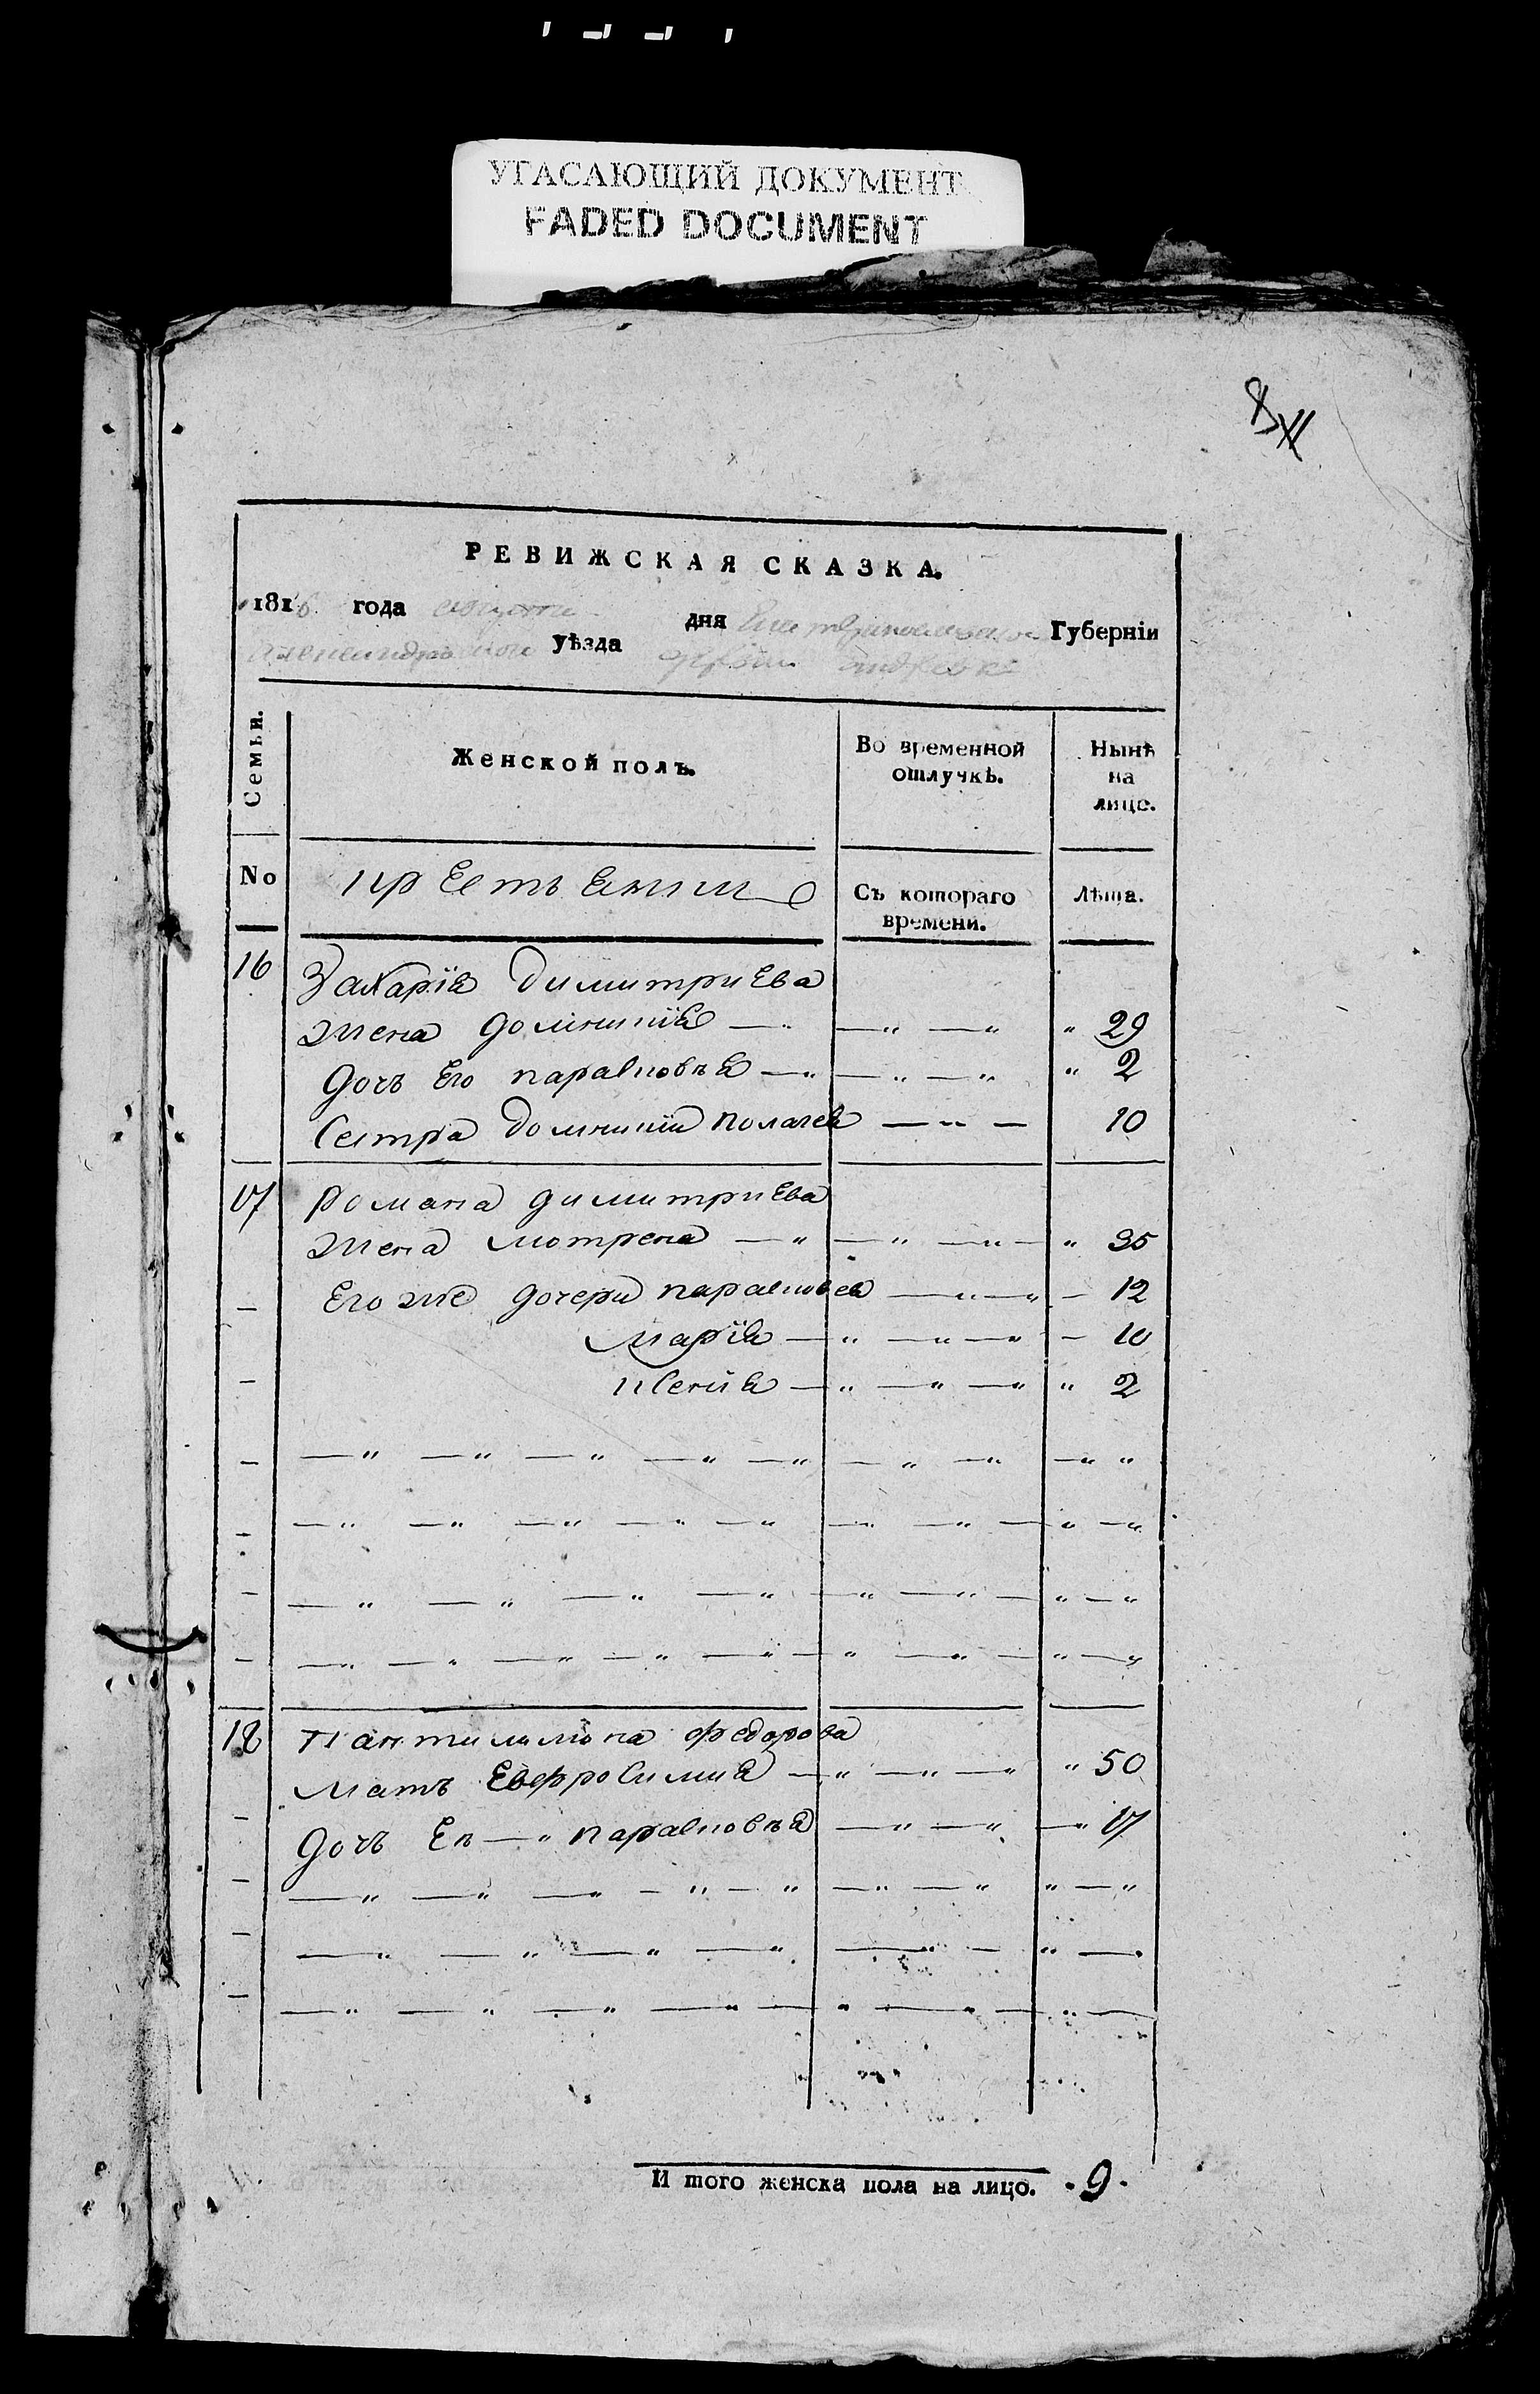 УГАСАЮЩИЙ ДОКУМЕНТ
FADED DOCUMENT
8
РЕВИЖСКАЯ СКАЗКА.
1816 года августа дня Екатеринославской Губернїи
александрійской уѣзда
Семьи.
Женской полъ.
Во временной отлучкѣ.
Нынѣ на лице.
No
крестьянки
Съ котораго времени.
Лѣта.
16 Захарія димитриева
жена домникія — " — " — " " 29
дочъ Его парасковья — " — " — " " 2
Сестра домникіи полагея — " — 10
17 романа димитриева
жена мотрена — " — " — " — " 35
Его же дочери парасковея — " — " — 12
марія — " — " — " — 10
ксенія — " — " — " " 2
18 Пантилимона федорова
мать Евфросимия — " — " — " " 50
дочъ Еѣ — " парасковья — " — " — " 17
И того женска пола на лицо. 9.